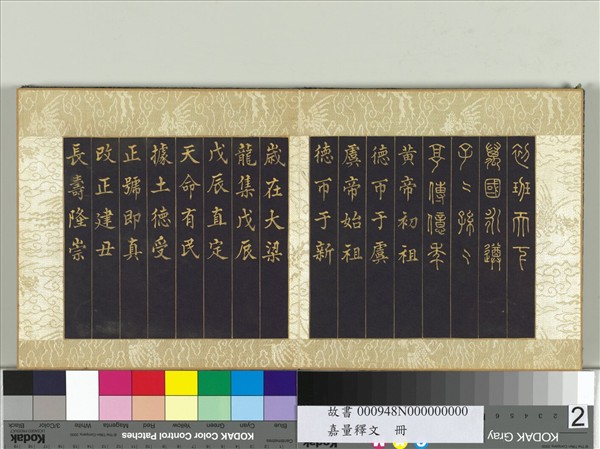 初班天下
萬國永遵
子〻孫〻
享傳億年
黃帝初祖
德帀于虞
虞帝始祖
德帀于新
歲在大梁
龍集戊辰
戊辰直定
天命有民
據土德受
正號即真
改正建丑
長壽隆崇
故書 000948N000000000
嘉量釋文 冊
2
KODAK Gray
Kodak
KODAK Color Control Patches
Blue Cyan Green Yellow Red Magenta White 3/Color Black